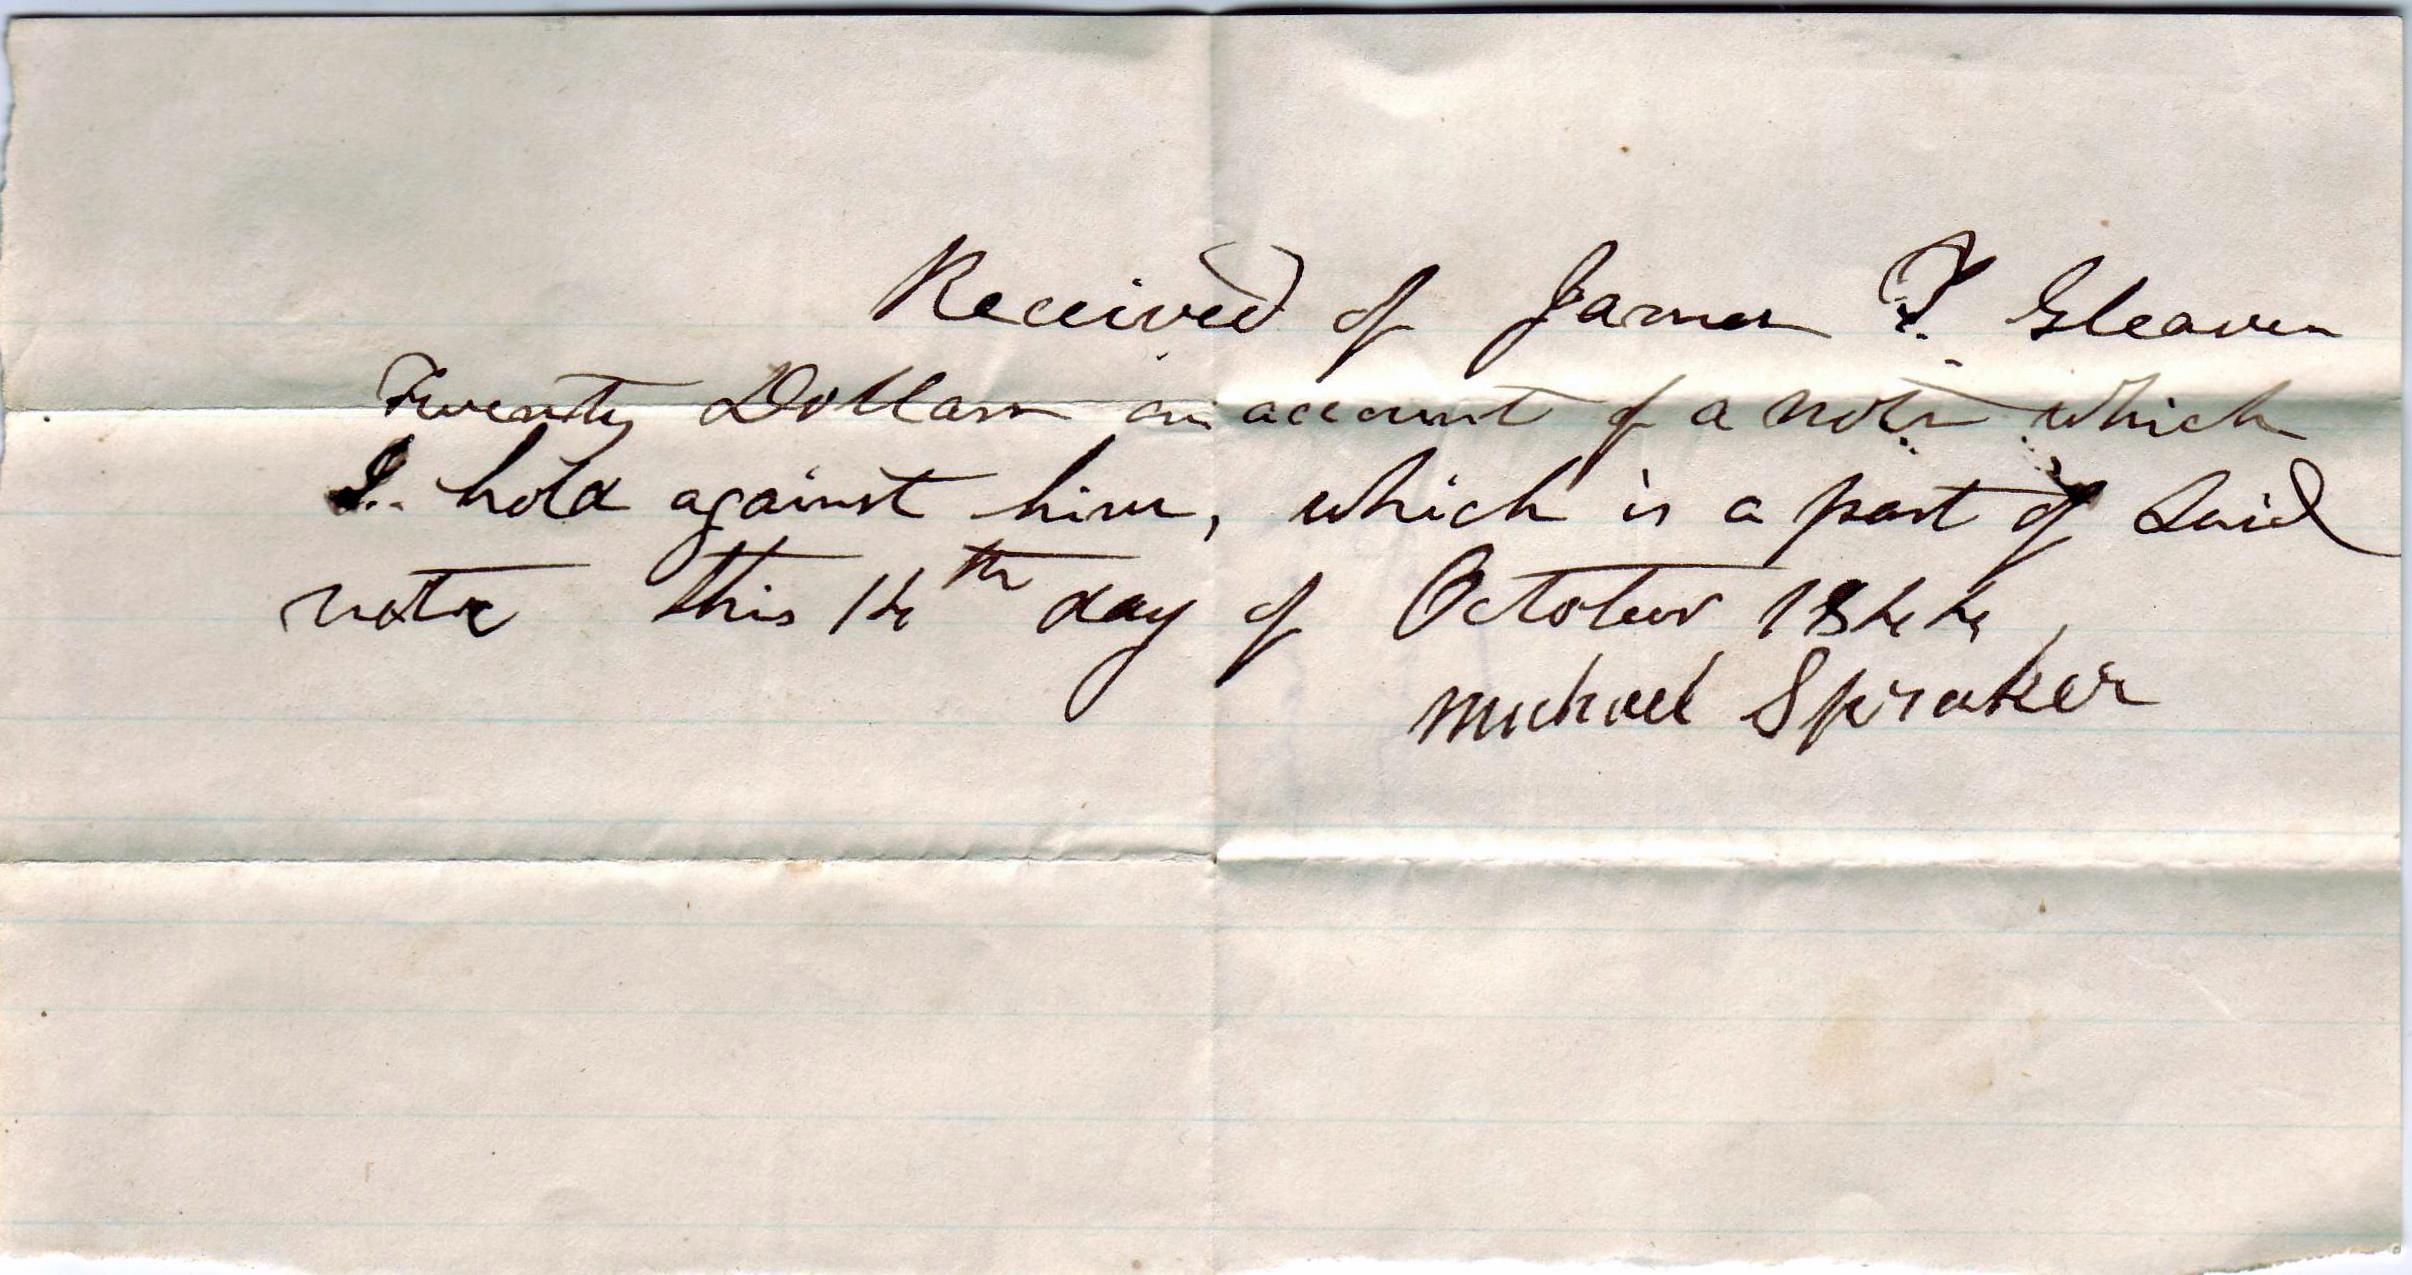 Received of James T. Gleaves
Twenty Dollars on account of a note which
I hold against him, which is a part of said
note this 14th day of October 1844,
Michael Spraker